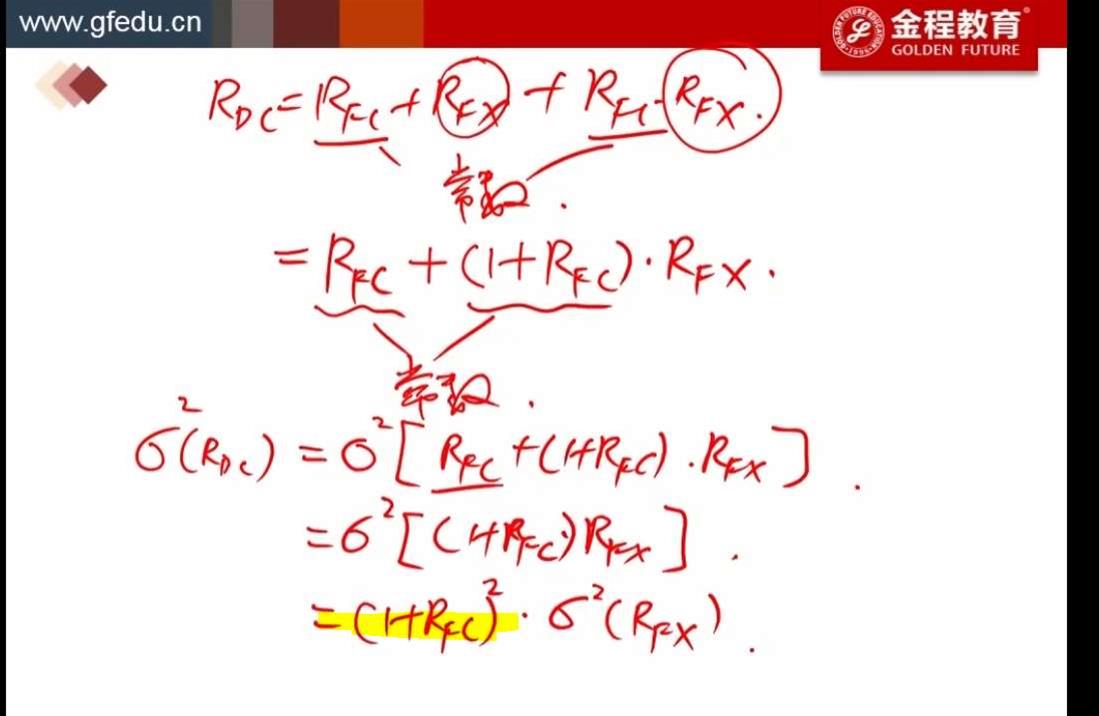 www.gfedu.cn
金程教育®
GOLDEN FUTURE
R_DC = R_FC + R_FX + R_FC · R_FX .
常数 .
= R_FC + (1+R_FC) · R_FX .
常数 .
σ²(R_DC) = σ²[R_FC + (1+R_FC) · R_FX] .
= σ²[(1+R_FC) R_FX] .
= (1+R_FC)² · σ²(R_FX) .